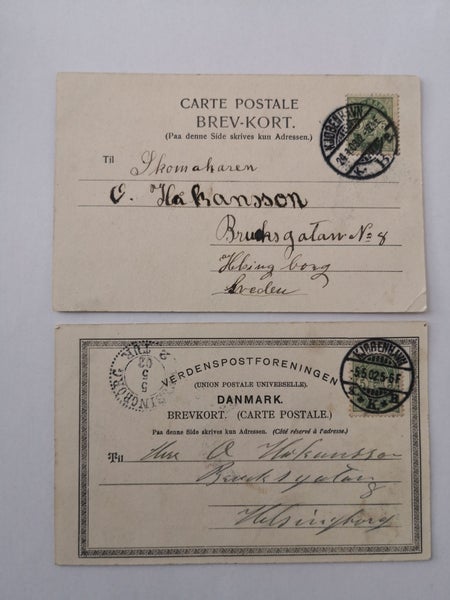 CARTE POSTALE
BREV-KORT.
(Paa denne Side skrives kun Adressen.)
KJØBENHAVN
K. B.
Til
Skomakaren
O. Håkansson
Bruksgatan No 8
Hbingborg
Sveden
2 TUR
5 5 02
VERDENSPOSTFORENINGEN
(UNION POSTALE UNIVERSELLE).
DANMARK.
BREVKORT. (CARTE POSTALE.)
Paa denne Side skrives kun Adressen. (Côté réservé à l'adresse.)
KJØBENHAVN
5.5.02.5-6F
K. B
Til
Herr O Håkansson
Bruksgatan 8
Helsingborg